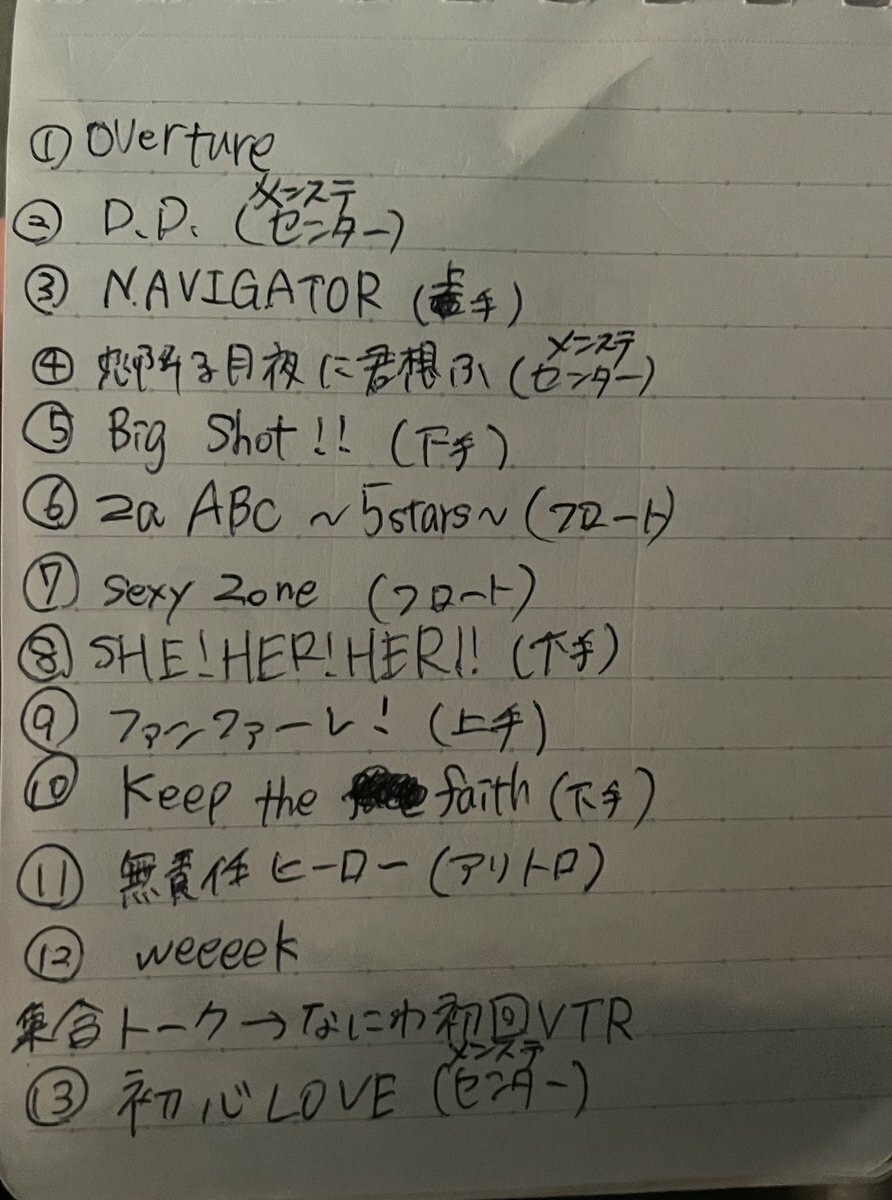 ① Overture
② D.D. (メンステセンター)
③ NAVIGATOR (上手)
④ る月夜に君想ふ (メンステセンター)
⑤ Big Shot!! (下手)
⑥ ABC ~5stars~ (フロート)
⑦ Sexy Zone (フロート)
⑧ SHE!HER!HER!! (下手)
⑨ ファンファーレ! (上手)
⑩ Keep the faith (下手)
⑪ 無責任ヒーロー (アリトロ)
⑫ weeeek
集合トーク→なにわ初回VTR
⑬ 初心LOVE (メンステセンター)